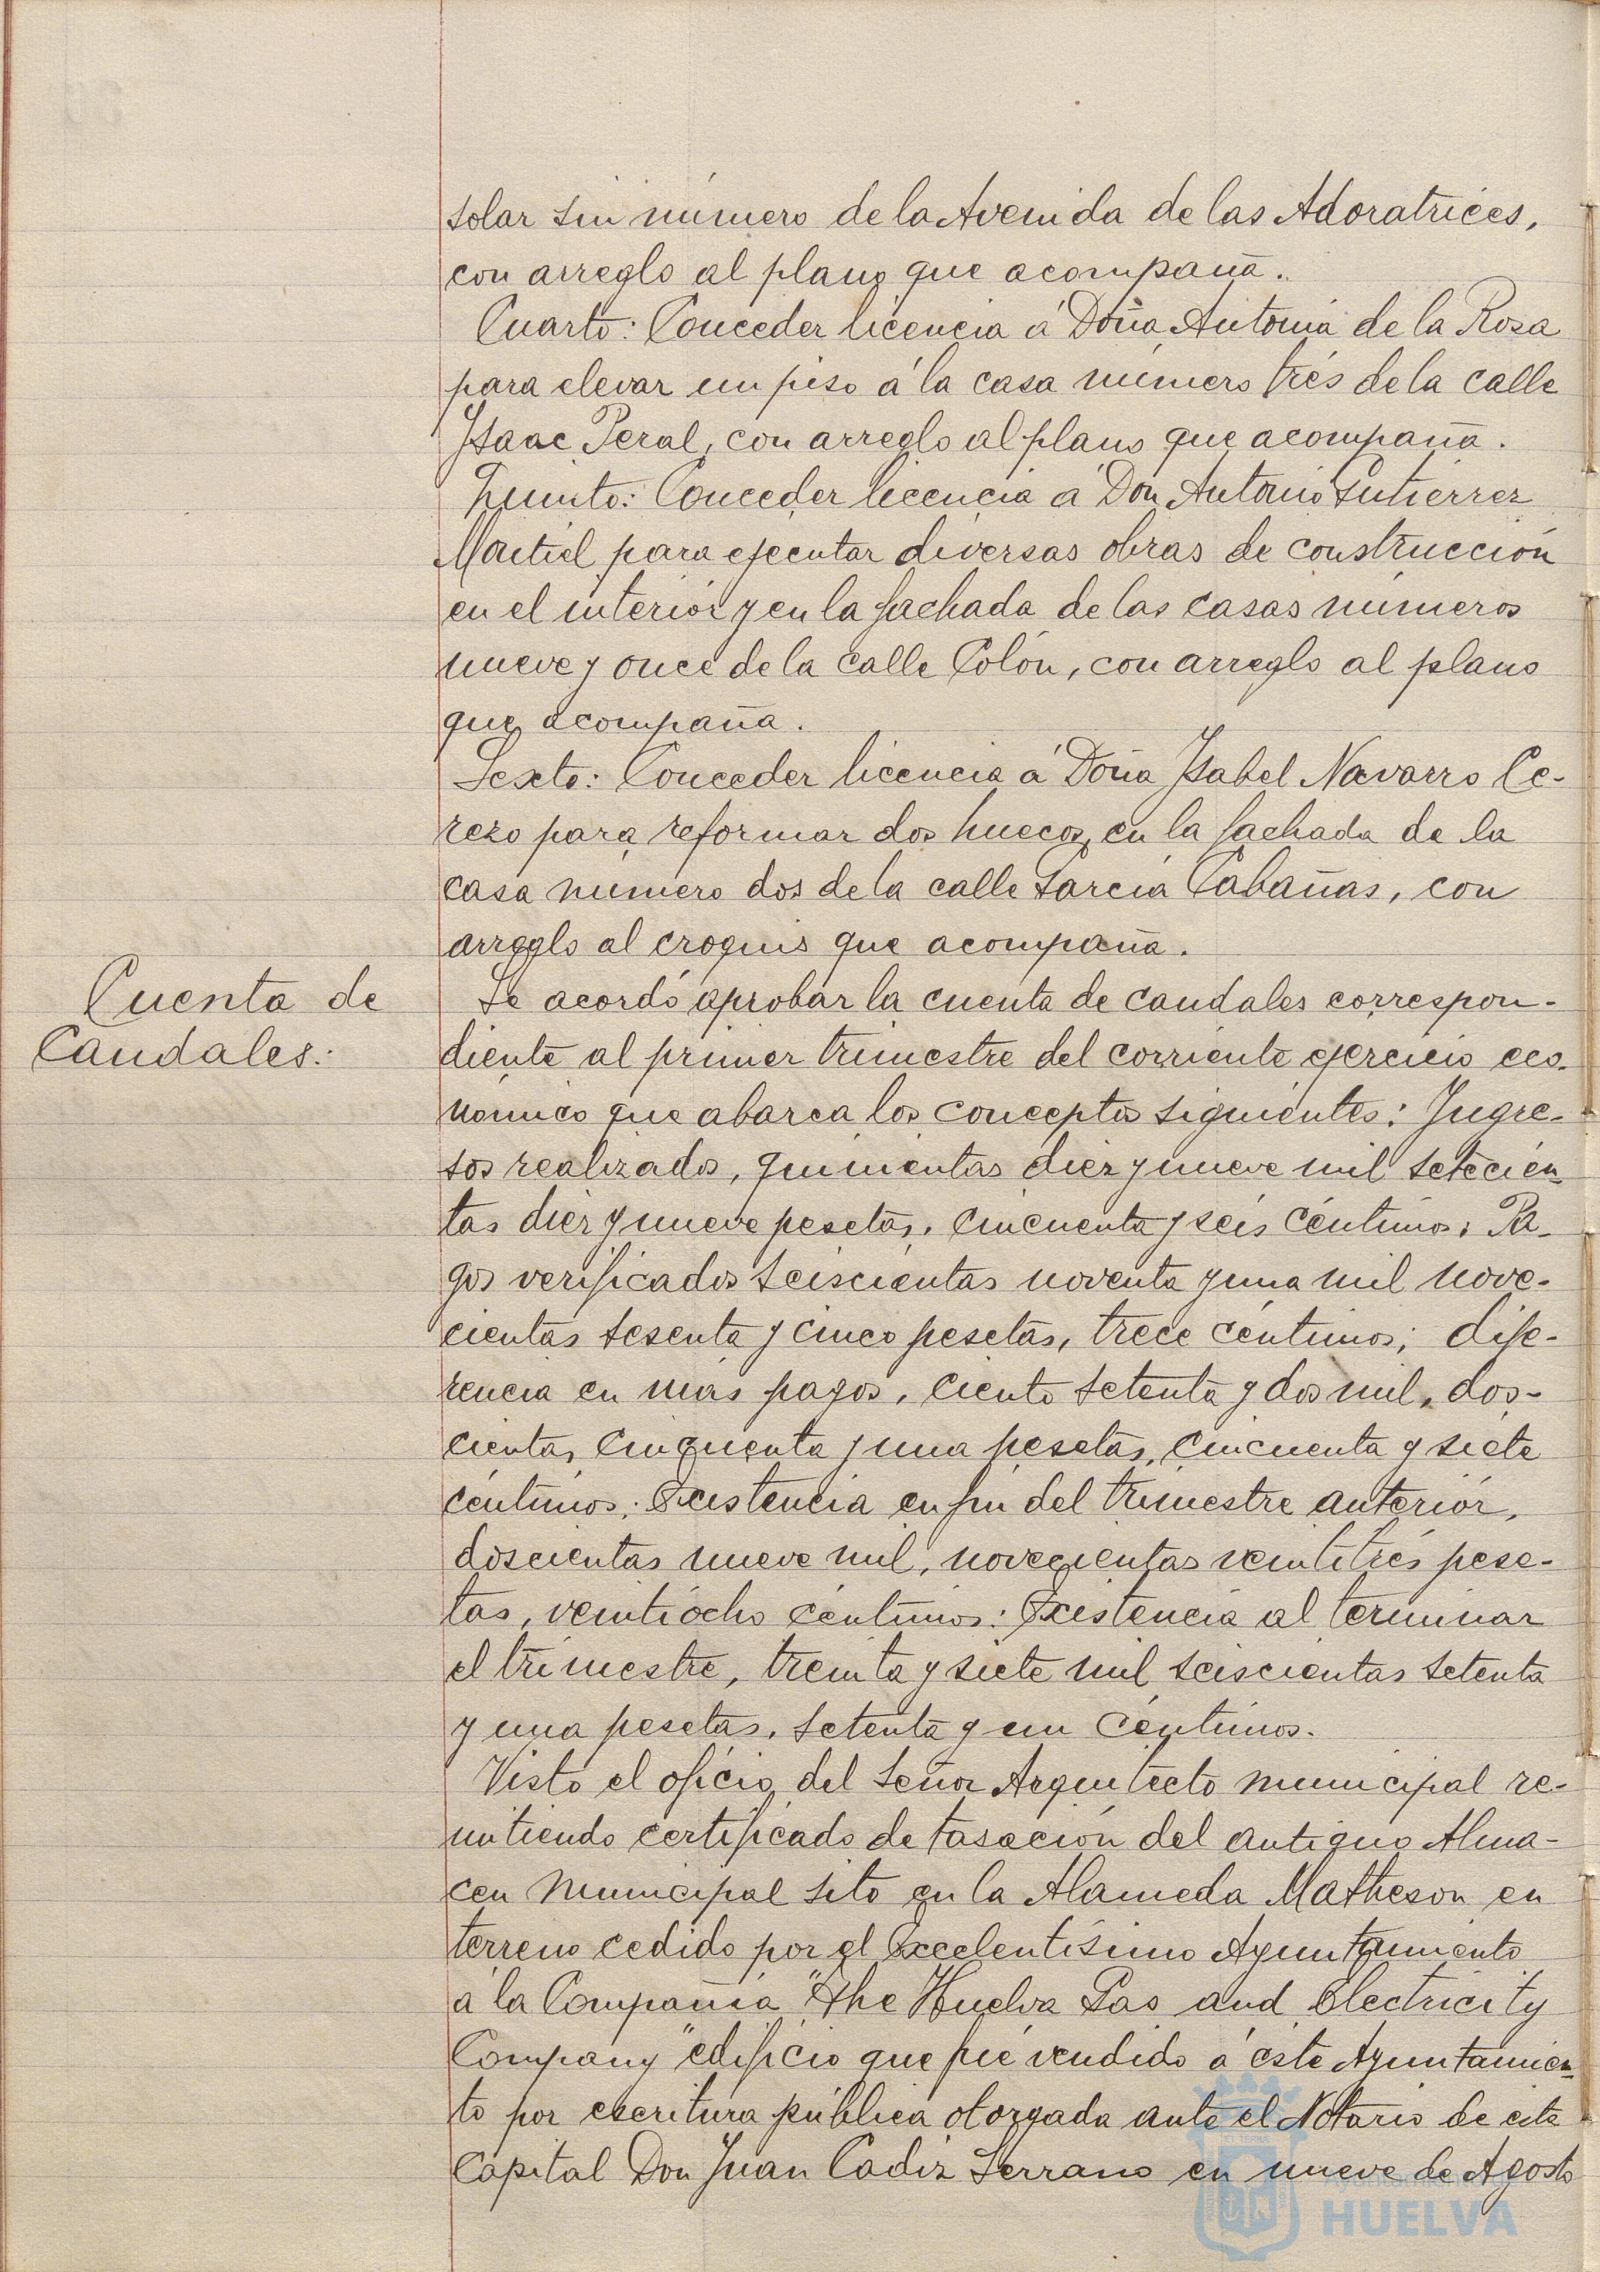 solar sin número de la Avenida de las Adoratrices,
con arreglo al plano que acompaña.
Cuarto: Conceder licencia á Doña Antonia de la Rosa
para elevar un piso á la casa número trés de la calle
Isaac Peral, con arreglo al plano que acompaña.
Quinto: Conceder licencia á Don Antonio Gutiérrez
Martiel para ejecutar diversas obras de construcción
en el interiór y en la fachada de las casas números
nueve y once de la calle Colón, con arreglo al plano
que acompaña.
Sexto: Conceder licencia á Doña Isabel Navarro Ce-
rezo para reformar dos huecos en la fachada de la
casa número dos de la calle García Cabañas, con
arreglo al croquis que acompaña.
Cuenta de
Caudales:
Se acordó aprobar la cuenta de caudales correspon-
diente al primer trimestre del corriente ejercicio eco-
nómico que abarca los conceptos siguientes: Ingre-
sos realizados, quinientas diez y nueve mil setecien-
tas diez y nueve pesetas, cincuenta y seis céntimos; Pa-
gos verificados seiscientas noventa y una mil nove-
cientas sesenta y cinco pesetas, trece céntimos; dife-
rencia en más pagos, ciento setenta y dos mil, dos-
cientas cincuenta y una pesetas, cincuenta y siete
céntimos; Existencia en fin del trimestre anteriór,
doscientas nueve mil, novecientas veintitrés pese-
tas, veintiocho céntimos: Existencia al terminar
el trimestre, treinta y siete mil seiscientas setenta
y una pesetas, setenta y un céntimos.
Visto el oficio del Señor Arquitecto municipal re-
mitiendo certificado de tasación del antiguo Alma-
cen Municipal sito en la Alameda Matheson en
terreno cedido por el Excelentísimo Ayuntamiento
á la Compañía "The Huelva Gas and Electricity
Company" edificio que fué vendido á éste Ayuntamien-
to por escritura pública otorgada ante el Notario de esta
Capital Don Juan Cadiz Serrano en nueve de Agosto
Ayuntamiento de
HUELVA